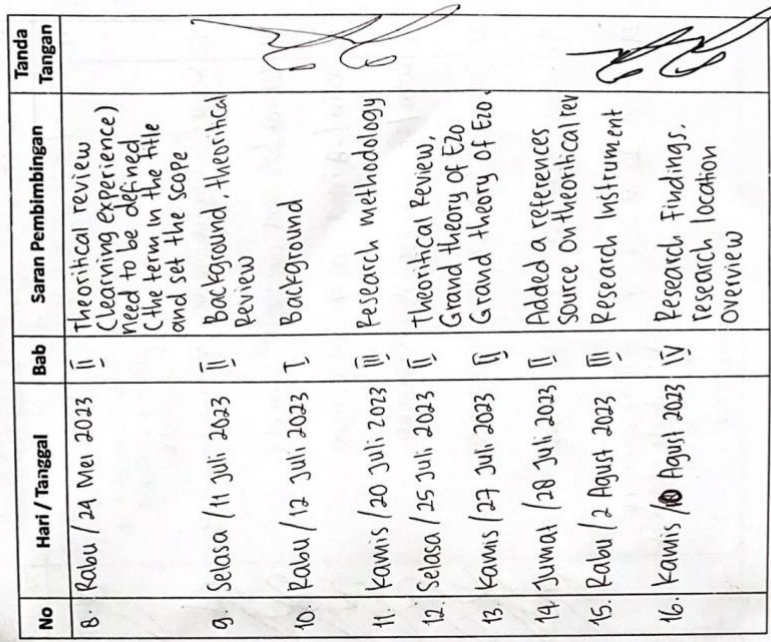 No Hari / Tanggal Bab Saran Pembimbingan Tanda Tangan
8. Rabu / 24 Mei 2023 II Theoritical review
(learning experience)
need to be defined
(the term in the title
and set the scope
9. Selasa / 11 Juli 2023 II Background, theoritical
Review
10. Rabu / 12 Juli 2023 I Background
11. Kamis / 20 Juli 2023 III Research methodology
12. Selasa / 25 Juli 2023 II Theoritical Review,
Grand theory of Ezo
13. Kamis / 27 Juli 2023 II Grand theory of Ezo.
14. Jumat / 28 Juli 2023 II Added a references
source on theoritical rev
15. Rabu / 2 Agust 2023 III Research Instrument
16. Kamis / 10 Agust 2023 IV Research Findings,
research location
overview